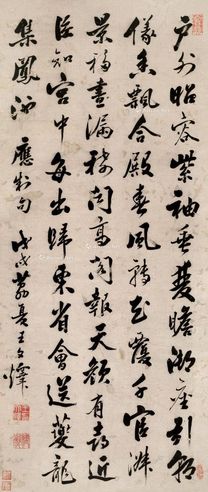 戶外昭容紫袖垂雙瞻御座引朝
儀香飄合殿春風轉花覆千官淑
景移晝漏稀聞高閣報天顏有喜近
臣知宮中每出歸東省會送夔龍
集鳳池 應制句 戊戌 王